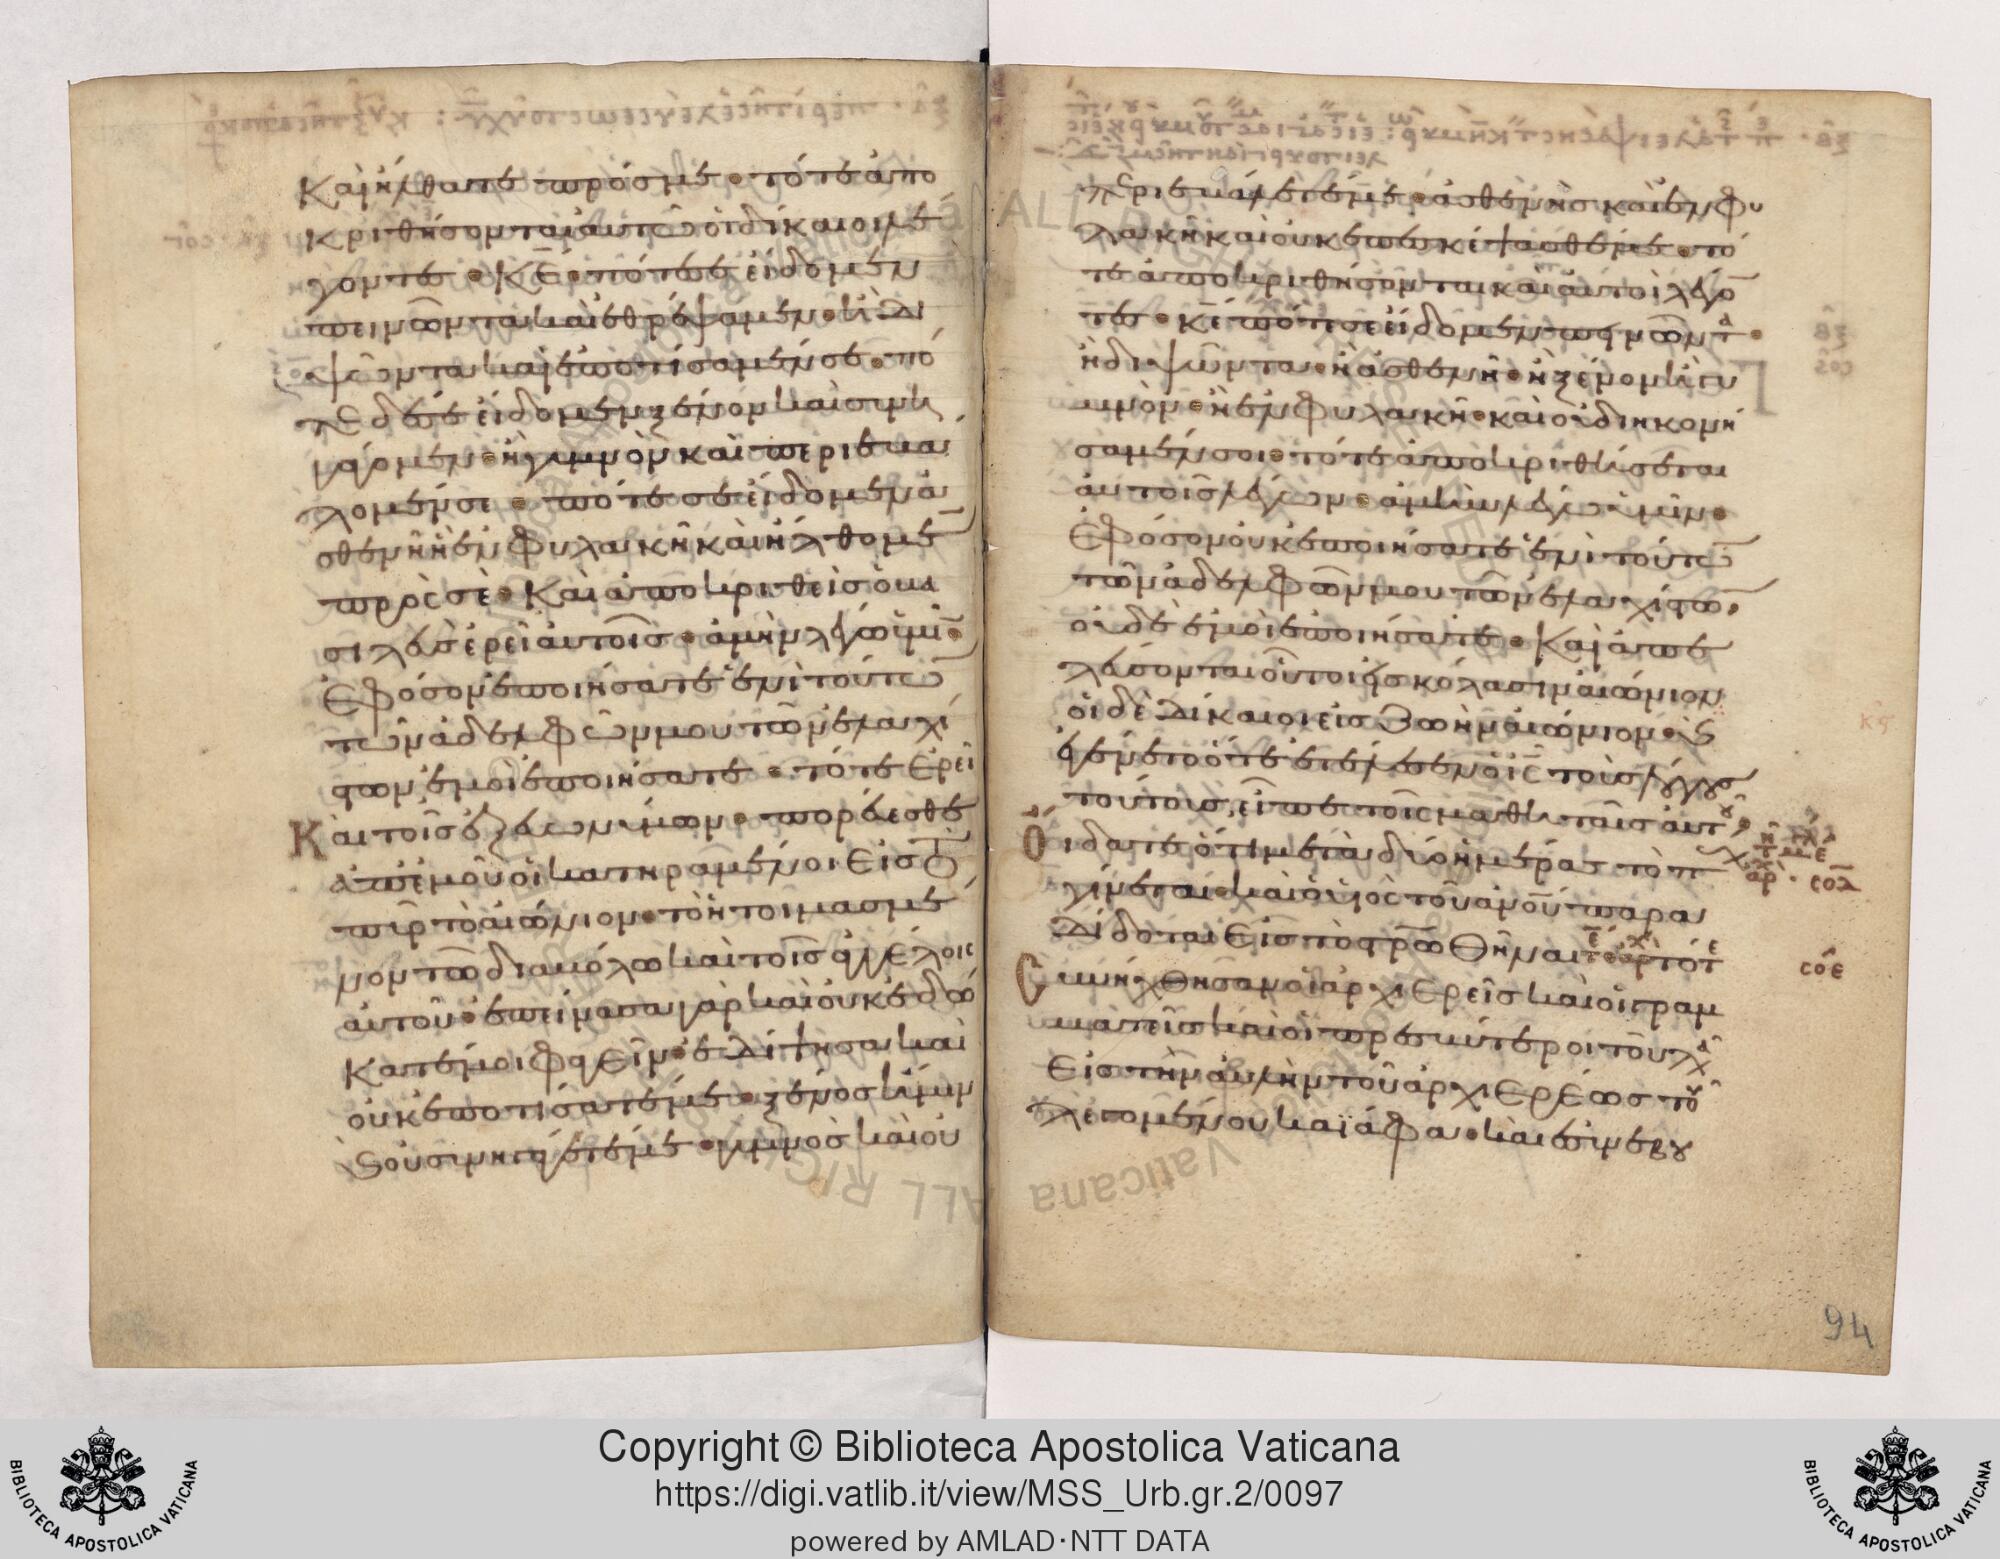 Καὶ ἤλθατε πρός με · τότε ἀπο
κριθήσονται αὐτῶ οἱ δίκαιοι λέ
γοντες · Κ̅Ε̅ · πότε σε εἴδομεν
πεινῶντα καὶ ἐθρέψαμεν · ἢ δι
ψῶντα καὶ ἐποτίσαμεν σε · πό
τε δέ σε εἴδομεν ξένον καὶ συνη
γάγομεν · ἢ γυμνὸν καὶ περιεβά
λομέν σε · πότε σε εἴδομεν ἀ
σθενῆ ἢ ἐν φυλακῆ καὶ ἤλθομε̅
πρός σε · Καὶ ἀποκριθεὶς ὁ βα
σιλεὺς ἐρεῖ αὐτοῖς · ἀμὴν λέγω ὑμῖ̅ ·
Ἐφ ὅσον ἐποιήσατε ἑνὶ τούτω̅
τῶν ἀδελφῶν μου τῶν ἐλαχί
στων ἐμοὶ ἐποιήσατε · τότε Ἐρεῖ
Καὶ τοῖς ἐξ εὐωνύμων · πορεύεσθε
ἀπ ἐμοῦ οἱ κατηραμένοι Εἰς τὸ
πῦρ τὸ αἰώνιον · τὸ ἡτοιμασμέ
νον τῶ διαβόλω καὶ τοῖς ἀγγέλοις
αὐτοῦ · ἐπείνασα γὰρ καὶ οὐκ ἐδώ
κατέ μοι φαγεῖν · ἐδίψησα καὶ
οὐκ ἐποτίσατέ με · ξένος ἤμην
καὶ οὐ συνηγάγετέ με · γυμνὸς καὶ οὐ
περιεβάλετέ με · ἀσθενὴς καὶ ἐν φυ
λακῆ καὶ οὐκ ἐπεσκέψασθέ με · τό
τε ἀποκριθήσονται καὶ αὐτοὶ λέγο̅
τες · κ̅ε̅ πότε σε εἴδομεν πεινῶντα ·
ἢ διψῶντα · ἢ ἀσθενῆ · ἢ ξένον ἢ γυ
μνὸν · ἢ ἐν φυλακῆ · καὶ οὐ διηκονή
σαμέν σοι · τότε ἀποκριθήσεται
αὐτοῖς λέγων · ἀμὴν λέγω ὑμῖν ·
Ἐφ ὅσον οὐκ ἐποιήσατε ἑνὶ τούτω̅
τῶν ἀδελφῶν μου τῶν ἐλαχίστω̅,
οὐδὲ ἐμοὶ ἐποιήσατε · Καὶ ἀπε
λεύσονται οὗτοι εἰς κόλασιν αἰώνιον
οἱ δὲ Δίκαιοι εἰς ζωὴν αἰώνιον · καὶ
ἐγένετο ὅτε ἐτέλεσεν ὁ ι̅ς̅ τοὺς λόγους
τούτους, εἶπε τοῖς μαθηταῖς αὐτοῦ ·
Οἴδατε ὅτι μετὰ δύο ἡμέρας τὸ π
γίνεται · καὶ ὁ υἱὸς τοῦ ἀνο̅υ̅ παρα
Δίδοται Εἰς τὸ στρωθῆναι τότε
Συνήχθησαν οἱ ἀρχιερεῖς καὶ οἱ γραμ
ματεῖς καὶ οἱ πρεσβύτεροι τοῦ λα
Εἰς τὴν αὐλὴν τοῦ ἀρχιερέως τοῦ
λεγομένου καϊάφα · καὶ συνεβου
σοδ
σοε
94
Copyright © Biblioteca Apostolica Vaticana
https://digi.vatlib.it/view/MSS_Urb.gr.2/0097
powered by AMLAD·NTT DATA
BIBLIOTECA APOSTOLICA VATICANA
BIBLIOTECA APOSTOLICA VATICANA